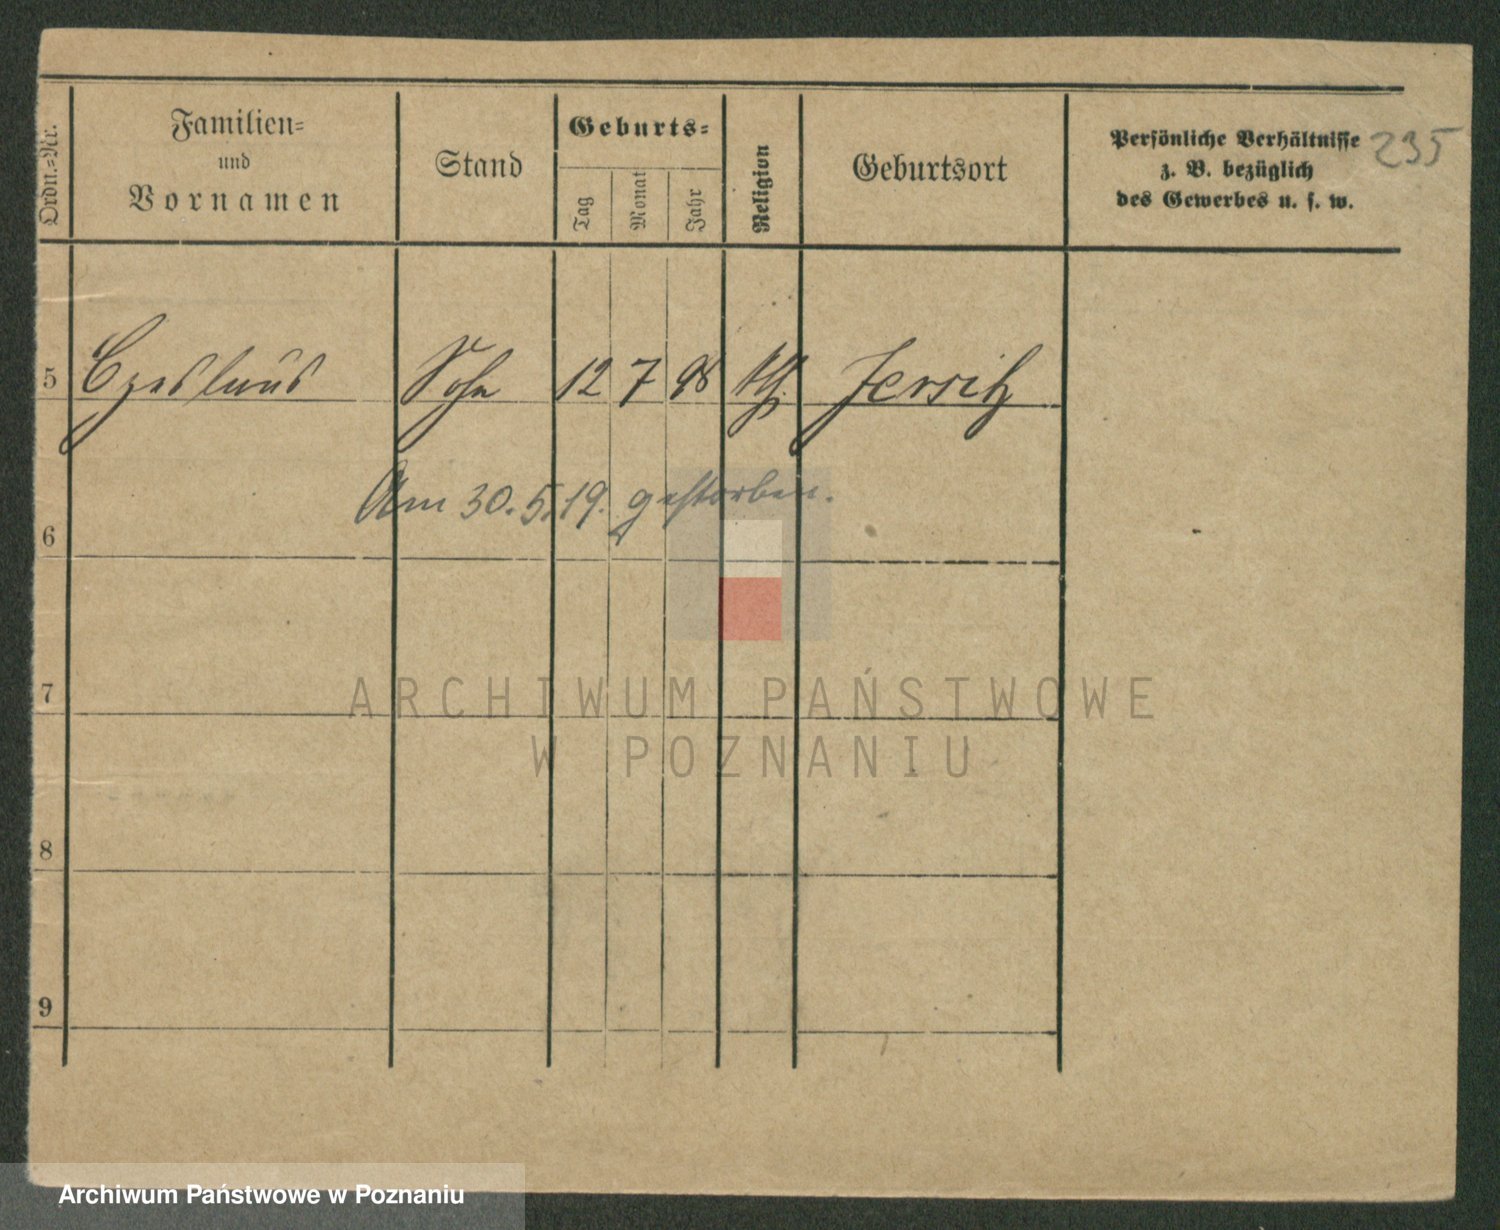 Ordn.-Nr.
Familien-
und
Vornamen
Stand
Geburts-
Tag
Monat
Jahr
Religion
Geburtsort
Persönliche Verhältnisse
z. B. bezüglich
des Gewerbes u. s. w.
235
5 Czeslaus Sohn 12 7 98 kth. Jersitz
Am 30.5.19. gestorben.
6
7
ARCHIWUM PAŃSTWOWE
W POZNANIU
8
9
Archiwum Państwowe w Poznaniu